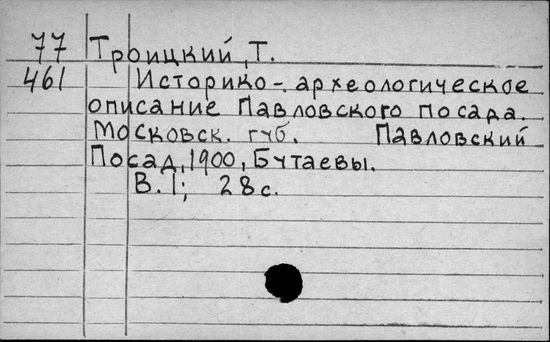 77 Троицкий, Т.
461 Историко-археологическое
описание Павловского посада.
Московск. губ. Павловский
Посад, 1900, Бутаевы.
В. I; 28 с.